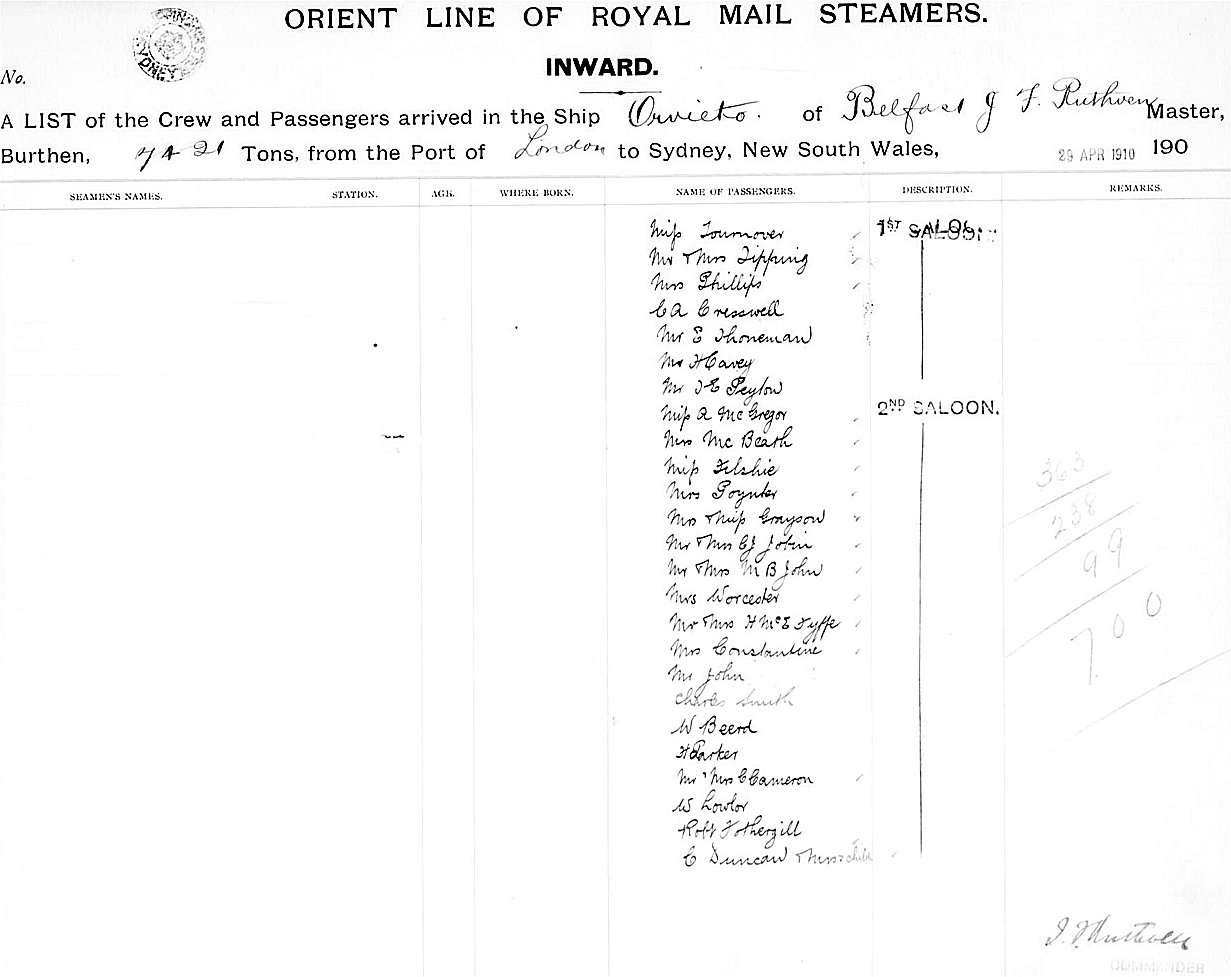 ORIENT LINE OF ROYAL MAIL STEAMERS.
SYDNEY
INWARD.
No.
A LIST of the Crew and Passengers arrived in the Ship Orvieto. of Belfast J F. Ruthven Master,
Burthen, 7421 Tons, from the Port of London to Sydney, New South Wales, 29 APR 1910 190
SEAMEN'S NAMES. STATION. AGE. WHERE BORN. NAME OF PASSENGERS. DESCRIPTION. REMARKS.
Miss Tournover 1ST SALOON
Mr & Mrs Tipping
Mrs Phillips
C A Cresswell
Mr E Thoneman
Mr H Cavey
Mr J E Peyton
Miss A McGregor 2ND SALOON.
Mrs McBeath
Miss Filshie
363
Mrs Poynter
Mrs & Miss Grayson
238
Mr & Mrs C J Jobin
99
Mr & Mrs M B John
Mrs Worcester
700
Mr & Mrs H McE Fyffe
Mrs Constantine
Mr John
Charles Smith
W Beerd
H Parker
Mr & Mrs C Cameron
W Lowlor
Robt Fothergill
C Duncan & Mrs & child
J. F. Ruthven
COMMANDER